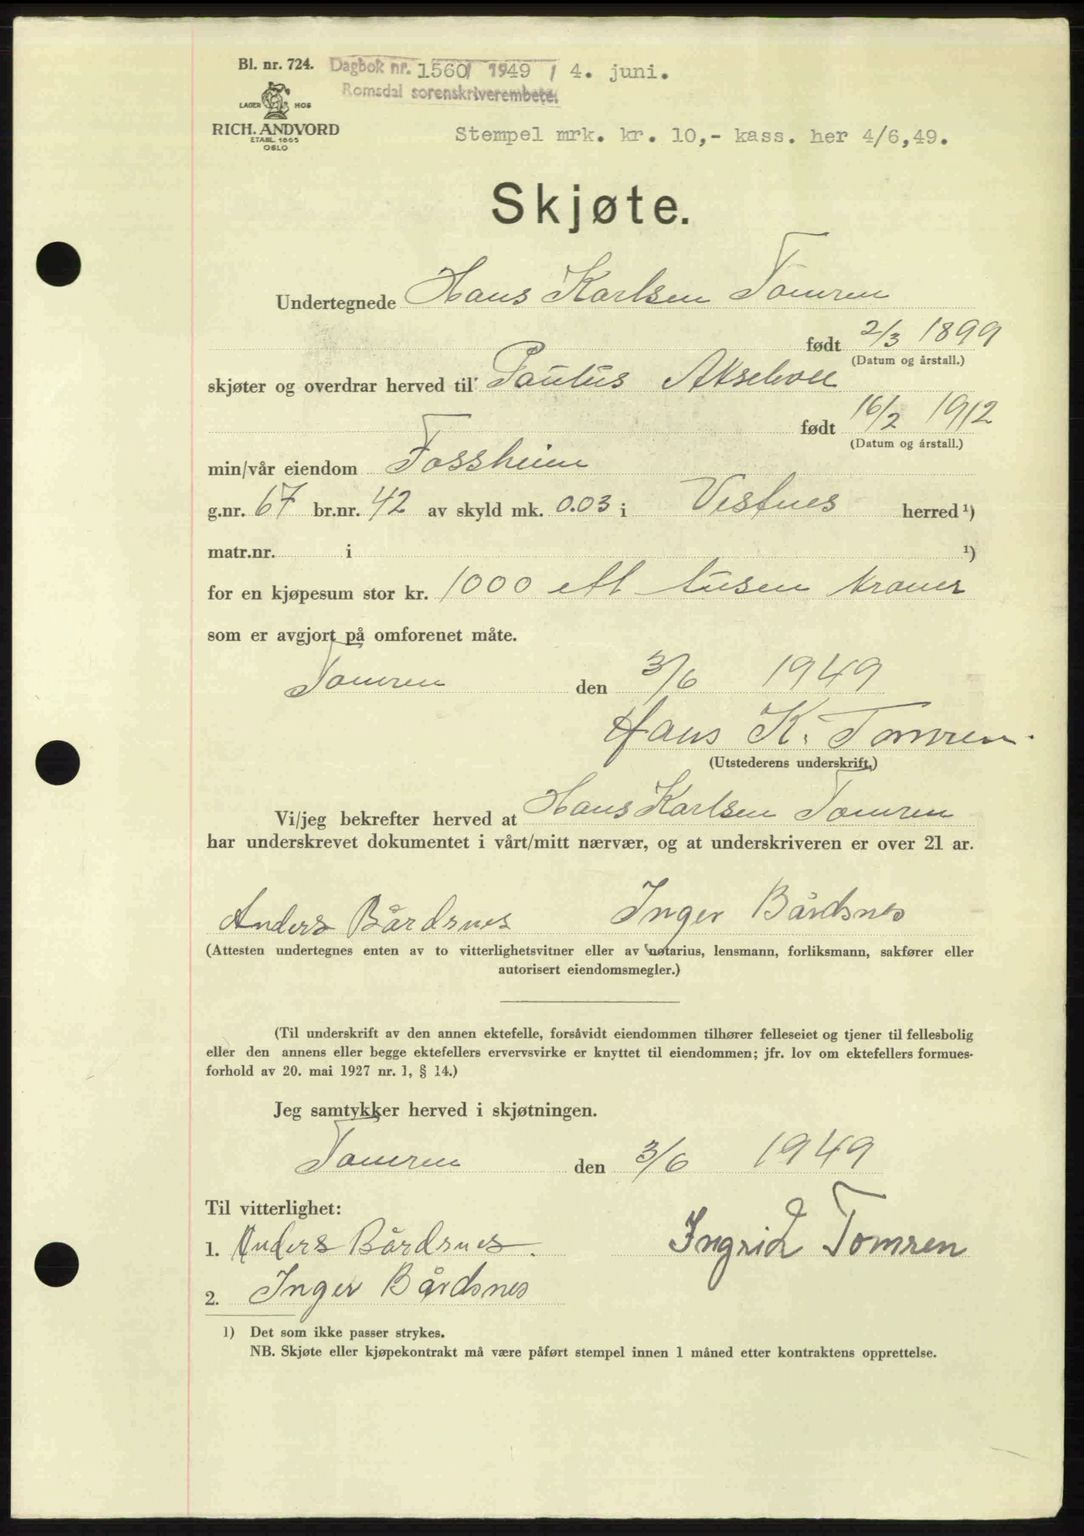 Bl. nr. 724. Dagbok nr. 1560/ 1949 / 4. juni.
Romsdal sorenskriverembete.
LAGER HOS
RICH. ANDVORD
ETABL. 1865
OSLO
Stempel mrk. kr. 10,- kass. her 4/6,49.
Skjøte.
Undertegnede Hans Karlsen Tomren
født 2/3 1899
(Datum og årstall.)
skjøter og overdrar herved til Paulus Akselvoll
født 16/2 1912
(Datum og årstall.)
min/vår eiendom Fossheim
g.nr. 67 br.nr. 42 av skyld mk. 0.03 i Vestnes herred ¹)
matr.nr. i ¹)
for en kjøpesum stor kr. 1000 ett tusen kroner
som er avgjort på omforenet måte.
Tomren den 3/6 1949
Hans K. Tomren.
(Utstederens underskrift.)
Vi/jeg bekrefter herved at Hans Karlsen Tomren
har underskrevet dokumentet i vårt/mitt nærvær, og at underskriveren er over 21 år.
Anders Bårdsnes Inger Bårdsnes
(Attesten undertegnes enten av to vitterlighetsvitner eller av notarius, lensmann, forliksmann, sakfører eller
autorisert eiendomsmegler.)
(Til underskrift av den annen ektefelle, forsåvidt eiendommen tilhører felleseiet og tjener til fellesbolig
eller den annens eller begge ektefellers ervervsvirke er knyttet til eiendommen; jfr. lov om ektefellers formues-
forhold av 20. mai 1927 nr. 1, § 14.)
Jeg samtykker herved i skjøtningen.
Tomren den 3/6 1949
Til vitterlighet:
1. Anders Bårdsnes. Ingrid Tomren
2. Inger Bårdsnes
1) Det som ikke passer strykes.
NB. Skjøte eller kjøpekontrakt må være påført stempel innen 1 måned etter kontraktens opprettelse.